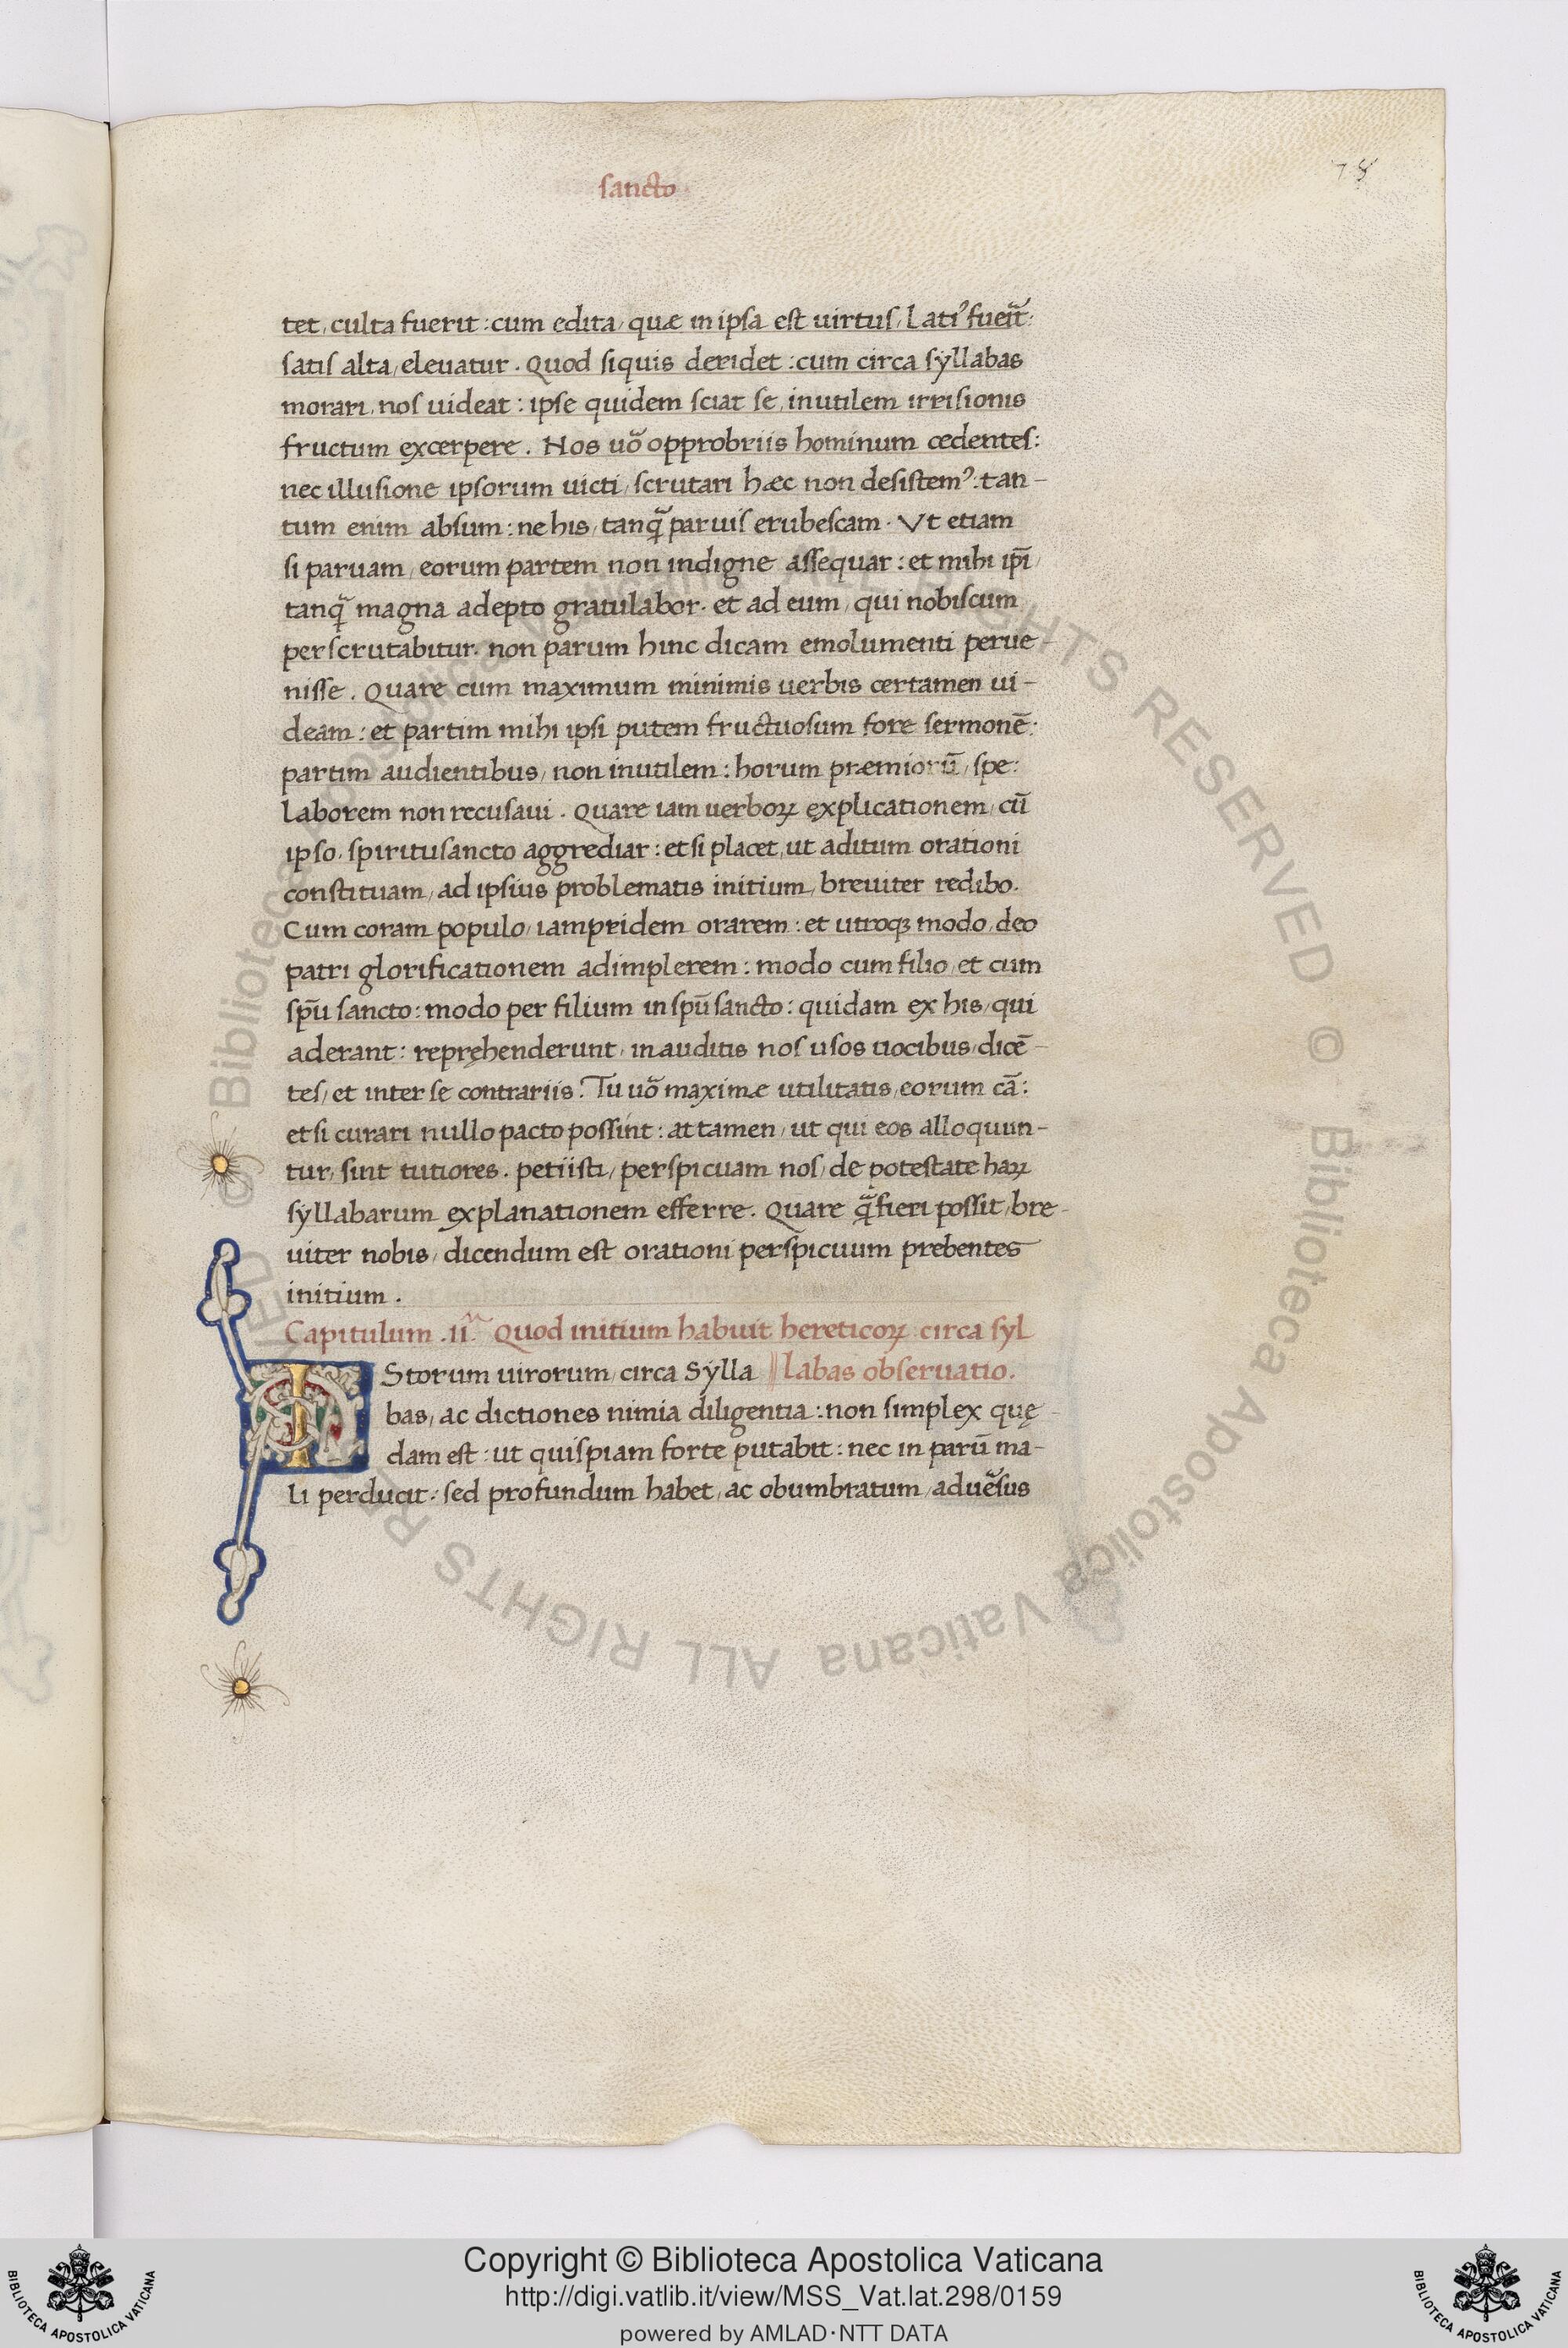 sancto
78
tet, culta fuerit: cum edita, quæ in ipsa est uirtus, Lati⁹ fuẽit:
satis alta, eleuatur. Quod siquis deridet: cum circa syllabas
morari, nos uideat: ipse quidem sciat se, inutilem irrisionis
fructum excerpere. Nos uõ opprobriis hominum cedentes:
nec illusione ipsorum uicti, scrutari hæc non desistem⁹: tan-
tum enim absum: ne his, tanq̃ paruis erubescam. Vt etiam
si paruam, eorum partem non indigne assequar: et mihi ip̄i,
tanq̃ magna adepto gratulabor. et ad eum, qui nobiscum
perscrutabitur. non parum hinc dicam emolumenti perue-
nisse. Quare cum maximum minimis uerbis certamen ui-
deam: et partim mihi ipsi putem fructuosum fore sermonē:
partim audientibus, non inutilem: horum præmiorū, spe:
Laborem non recusaui. Quare iam uerboꝝ explicationem, cū
ipso, spiritusancto aggrediar: et si placet, ut aditum orationi
constituam, ad ipsius problematis initium, breuiter redibo.
Cum coram populo, iampridem orarem: et utroqꝫ modo, deo
patri glorificationem adimplerem: modo cum filio, et cum
spū sancto: modo per filium in spū sancto: quidam ex his, qui
aderant: repręhenderunt, inauditis nos usos uocibus, dicē-
tes, et inter se contrariis. Tu uõ maximæ utilitatis, eorum cā:
et si curari nullo pacto possint: attamen, ut qui eos alloquun-
tur, sint tutiores. petiisti, perspicuam nos, de potestate haꝝ
syllabarum explanationem efferre. Quare q̃ fieri possit, bre-
uiter nobis, dicendum est orationi perspicuum prebentes
initium.
Capitulum .II.ᵐ Quod initium habuit hereticoꝝ circa syl
IStorum uirorum, circa Sylla || labas obseruatio.
bas, ac dictiones nimia diligentia: non simplex quę-
dam est: ut quispiam forte putabit: nec in parū ma-
li perducit: sed profundum habet, ac obumbratum, aduẽsus
© Biblioteca Apostolica Vaticana ALL RIGHTS RESERVED © Biblioteca Apostolica Vaticana ALL RIGHTS RESERVED
Copyright © Biblioteca Apostolica Vaticana
http://digi.vatlib.it/view/MSS_Vat.lat.298/0159
powered by AMLAD·NTT DATA
BIBLIOTECA APOSTOLICA VATICANA
BIBLIOTECA APOSTOLICA VATICANA